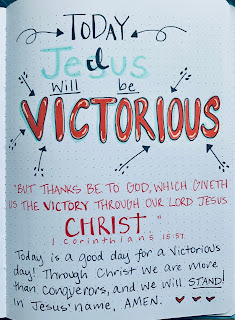 TODAY
Jesus & I
Will be
VICTORIOUS
"BUT THANKS BE TO GOD, WHICH GIVETH
US THE VICTORY THROUGH OUR LORD JESUS
CHRIST."
1 Corinthians 15:57
Today is a good day for a Victorious
day! Through Christ we are more
than Conquerors, and we will STAND!
In Jesus' name, AMEN.